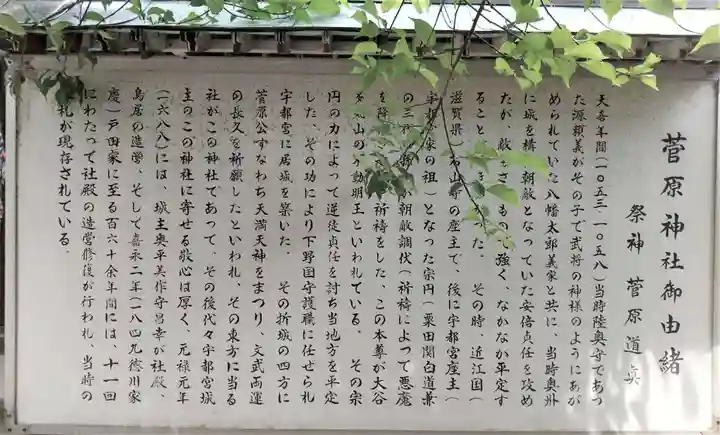 菅原神社御由緒
祭神 菅原道真
天喜年間(一〇五三-一〇五八)当時陸奥守であつ
た源頼義がその子で武将の神様のようにあが
められていた八幡太郎義家と共に、当時奥州
に城を構え朝敵となっていた安倍貞任を攻め
たが、敵もさるもので強く、なかなか平定す
ること た。その時、近江国(
滋賀県 山寺の座主で、後に宇都宮座主(
宇都 家の祖)となった宗円(粟田関白道兼
の三 朝敵調伏(祈祷によって悪魔
を降 祈祷をした、この本尊が大谷
山の 動明王といわれている。その宗
円の力によって逆徒貞任を討ち当地方を平定
した、その功により下野国守護職に任せられ
宇都宮に居城を築いた。その折城の四方に
菅原公すなわち天満天神をまつり、文武両運
の長久を祈願したといわれ、その東方に当る
社がこの神社であって、その後代々宇都宮城
主のこの神社に寄せる敬心は厚く、元禄元年
(一六八八)には、城主奥平美作守昌章が社殿、
鳥居の造営、そして嘉永二年(一八四九徳川家
慶)戸田家に至る百六十余年間には、十一回
にわたって社殿の造営修復が行われ、当時の
札が現存されている。